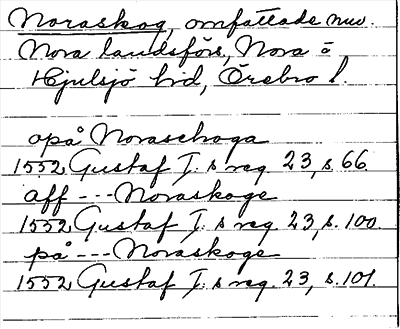 Noraskog, omfattade nuv.
Nora landsförs, Nora o
Hjulsjö hid, Örebro l.
opå Noraschoga
1552 Gustaf I:s reg. 23, s. 66.
aff --- Noraskoge
1552 Gustaf I:s reg. 23, s. 100.
på --- Noraskoge
1552 Gustaf I:s reg. 23, s. 101.